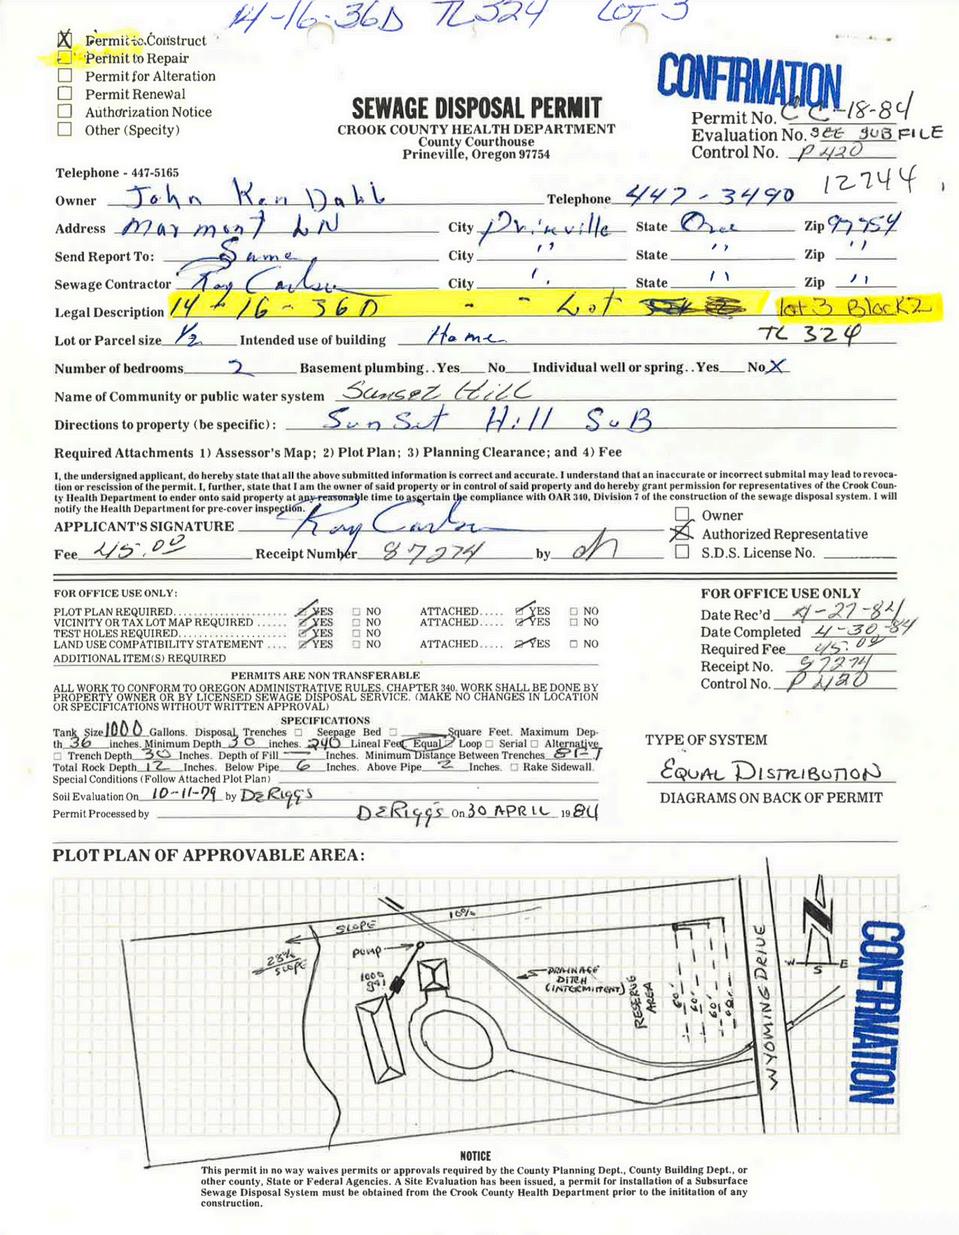 14-16-36D TL324 LOT 3
X Permit to Construct
Permit to Repair
Permit for Alteration
Permit Renewal
Authorization Notice
Other (Specify)
CONFIRMATION
SEWAGE DISPOSAL PERMIT
CROOK COUNTY HEALTH DEPARTMENT
County Courthouse
Prineville, Oregon 97754
Permit No. CC-18-84
Evaluation No. SEE SUB FILE
Control No. P420
12744
Telephone - 447-5165
Owner John Ken Dahl Telephone 447-3490
Address Marmont LN City Prinville State Ore Zip 97754
Send Report To: Same City " State " Zip "
Sewage Contractor Roy Carlson City " State " Zip "
Legal Description 14 - 16 - 36D - - Lot lot 3 Block 2
Lot or Parcel size 1/2 Intended use of building Home TL 324
Number of bedrooms 2 Basement plumbing. . Yes No Individual well or spring. . Yes No X
Name of Community or public water system Sunset Hill
Directions to property (be specific): SunSet Hill SuB
Required Attachments 1) Assessor's Map; 2) Plot Plan; 3) Planning Clearance; and 4) Fee
I, the undersigned applicant, do hereby state that all the above submitted information is correct and accurate. I understand that an inaccurate or incorrect submital may lead to revoca-
tion or rescission of the permit. I, further, state that I am the owner of said property or in control of said property and do hereby grant permission for representatives of the Crook Coun-
ty Health Department to ender onto said property at any reasonable time to ascertain the compliance with OAR 340, Division 7 of the construction of the sewage disposal system. I will
notify the Health Department for pre-cover inspection.
APPLICANT'S SIGNATURE Roy Carlson
Owner
X Authorized Representative
S.D.S. License No.
Fee 45.00 Receipt Number 87274 by
FOR OFFICE USE ONLY:
PLOT PLAN REQUIRED YES NO ATTACHED YES NO
VICINITY OR TAX LOT MAP REQUIRED YES NO ATTACHED YES NO
TEST HOLES REQUIRED YES NO
LAND USE COMPATIBILITY STATEMENT YES NO ATTACHED YES NO
ADDITIONAL ITEM(S) REQUIRED
FOR OFFICE USE ONLY
Date Rec'd 4-27-84
Date Completed 4-30-84
Required Fee 45.00
Receipt No. 87274
Control No. P420
PERMITS ARE NON TRANSFERABLE
ALL WORK TO CONFORM TO OREGON ADMINISTRATIVE RULES. CHAPTER 340. WORK SHALL BE DONE BY
PROPERTY OWNER OR BY LICENSED SEWAGE DISPOSAL SERVICE. (MAKE NO CHANGES IN LOCATION
OR SPECIFICATIONS WITHOUT WRITTEN APPROVAL)
SPECIFICATIONS
Tank Size 1000 Gallons. Disposal Trenches Seepage Bed Square Feet. Maximum Dep-
th 36 inches. Minimum Depth 30 inches. 240 Lineal Feet Equal Loop Serial Alternative
Trench Depth 30 Inches. Depth of Fill — Inches. Minimum Distance Between Trenches 8FT
Total Rock Depth 12 Inches. Below Pipe 6 Inches. Above Pipe 2 Inches. Rake Sidewall.
Special Conditions (Follow Attached Plot Plan)
Soil Evaluation On 10-11-79 by DERIGGS
Permit Processed by DERIGGS On 30 APRIL 1984
TYPE OF SYSTEM
EQUAL DISTRIBUTION
DIAGRAMS ON BACK OF PERMIT
PLOT PLAN OF APPROVABLE AREA:
10%
SLOPE
23%
SLOPE
PUMP
1000
gal
DRAINAGE
DITCH
(INTERMITTENT)
RESERVE
AREA
60'
60'
60'
60'
WYOMING DRIVE
N
W E
S
CONFIRMATION
NOTICE
This permit in no way waives permits or approvals required by the County Planning Dept., County Building Dept., or
other county, State or Federal Agencies. A Site Evaluation has been issued, a permit for installation of a Subsurface
Sewage Disposal System must be obtained from the Crook County Health Department prior to the inititation of any
construction.